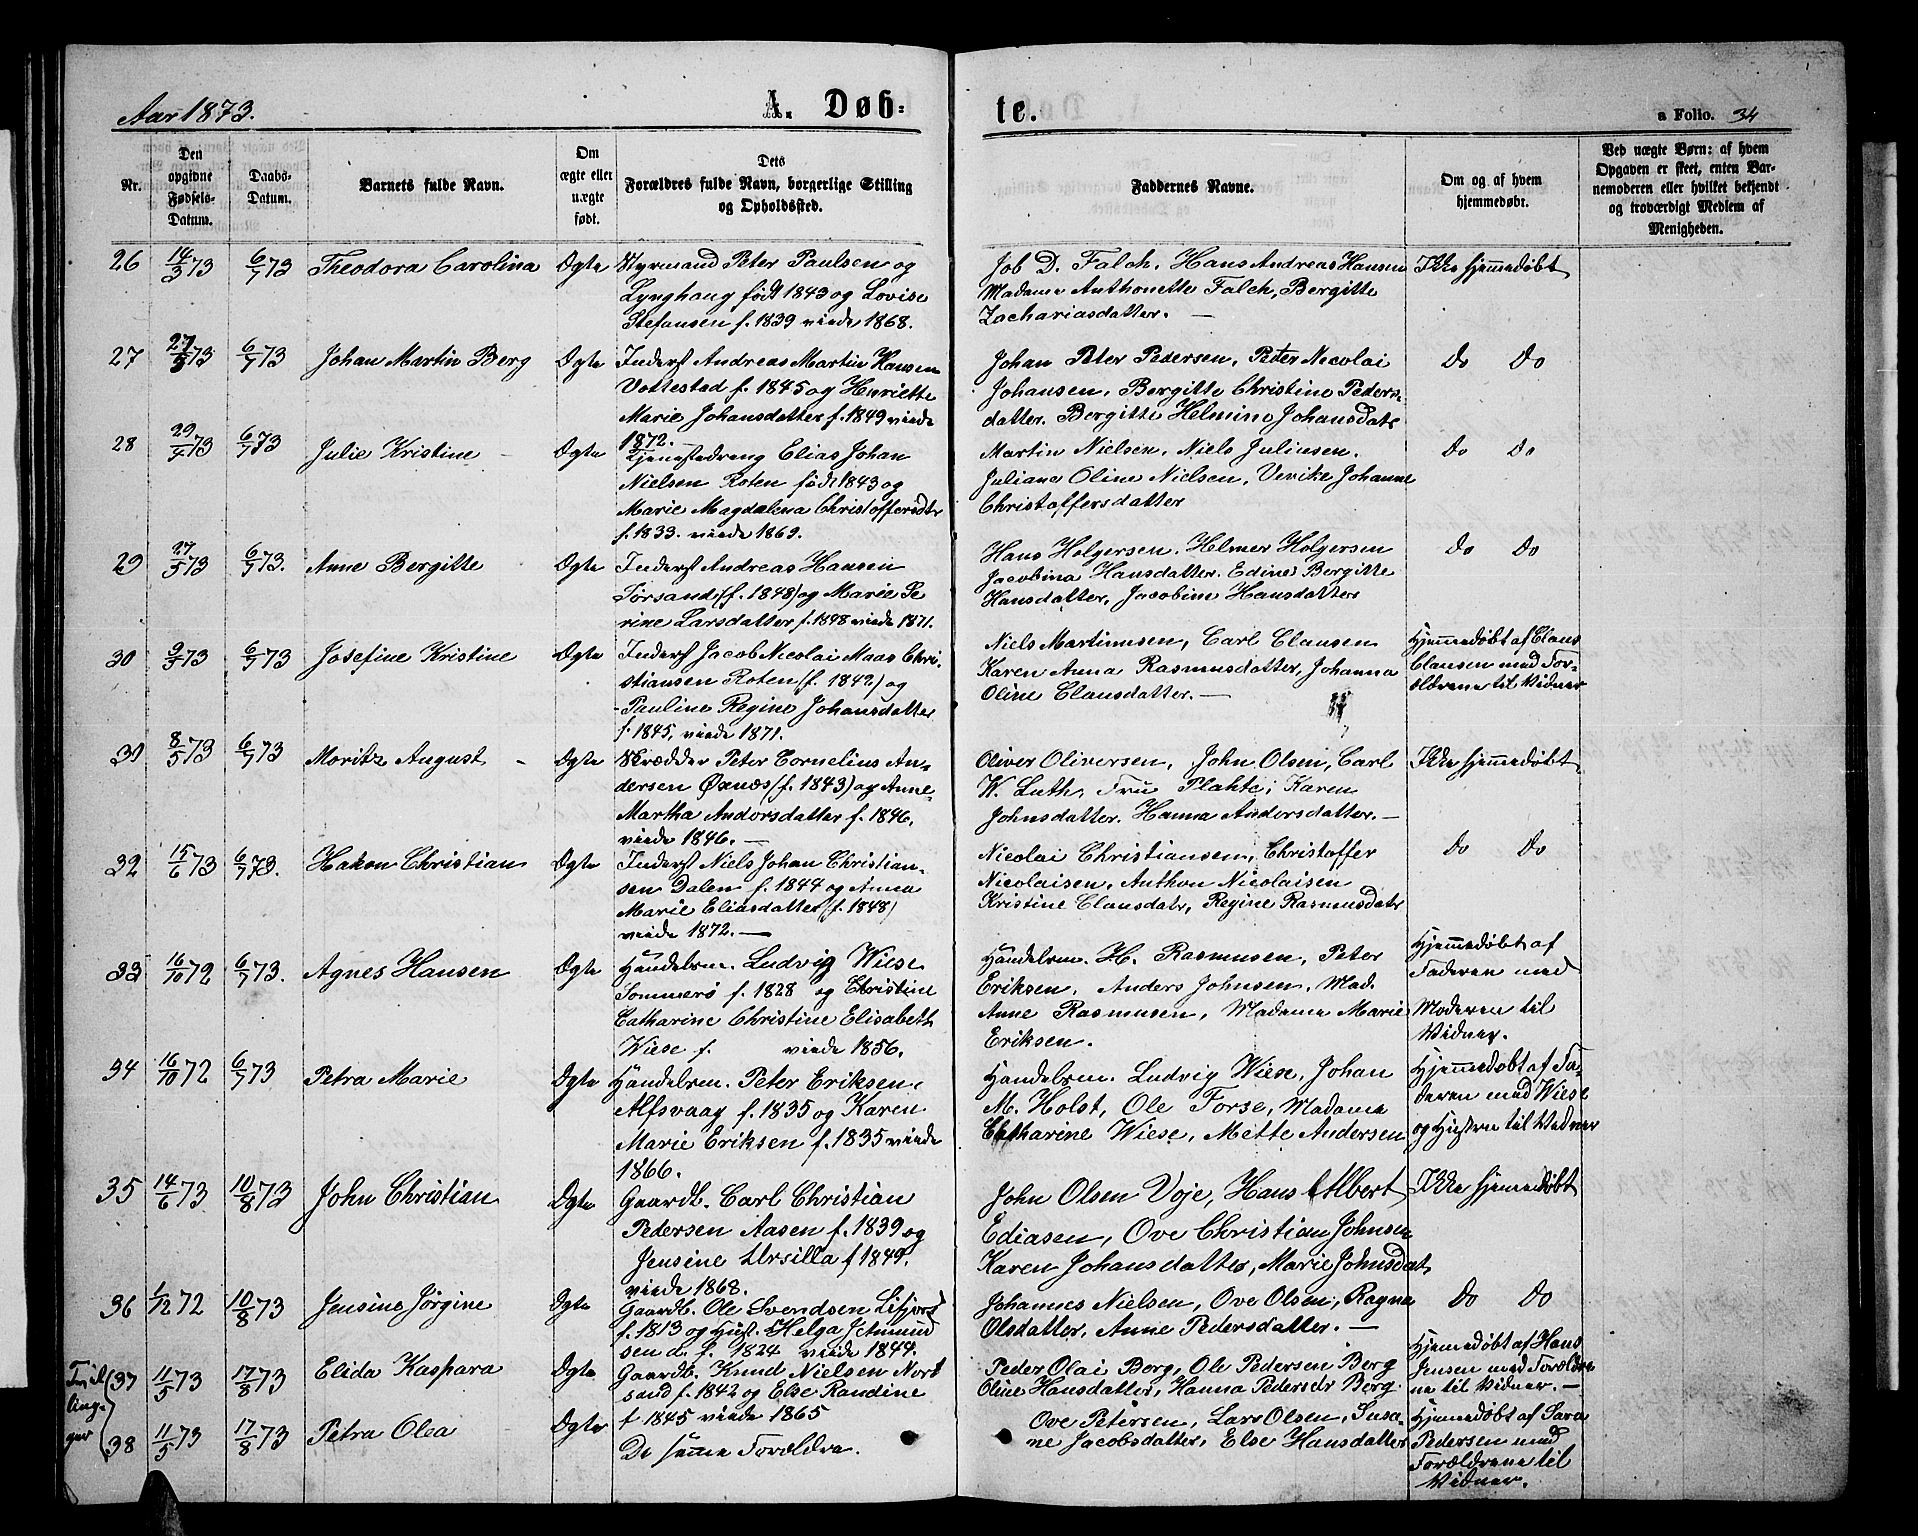 Aar 1873.
A. Døb-
te.
a Folio. 34
Nr.
Den opgivne Fødsels-Datum.
Daabs-Datum.
Barnets fulde Navn.
Om ægte eller uægte født.
Dets Forældres fulde Navn, borgerlige Stilling og Opholdssted.
Faddernes Navne.
Om og af hvem hjemmedøbt.
Ved uægte Børn: af hvem Opgaven er skeet, enten Barnemoderen eller hvilket bekjendt og troværdigt Medlem af Menigheden.
26 14/3 73 6/7 73 Theodora Carolina Ægte
Styrmand Peter Paulsen og
Lynghaug født 1843 og Lovise
Stefansen f. 1839 viede 1868.
Job D. Falch, Hans Andreas Hansen
Madame Anthonette Falch, Bergitte
Zachariasdatter. —
Ikke hjemmedøbt
27 27/3 73 6/7 73 Johan Martin Berg Ægte
Inderst Andreas Martin Hansen
Vottestad f. 1845 og Henriette
Marie Johansdatter f. 1849 viede
1872.
Johan Peter Pedersen, Peter Nicolai
Johansen, Bergitte Christine Peders-
datter. Bergitte Helmine Johansdatr
Do Do
28 29/4 73 6/7 73 Julie Kristine Ægte
Tjenestedreng Elias Johan
Nielsen Roten født 1843 og
Marie Magdalena Christoffersdtr
f. 1833. viede 1869.
Martin Nielsen, Niels Juliusen.
Juliane Oline Nielsen, Verike Johanne
Christoffersdatter
Do Do
29 27/5 73 6/7 73. Anne Bergitte Ægte
Inderst Andreas Hansen
Torsand (f. 1848) og Marie Pe
rine Larsdatter f. 1848 viede 1871.
Hans Holgersen. Helmer Holgersen
Jacobina Hansdatter. Edine Bergitte
Hansdatter, Jacobine Hansdatter
Do Do
30 9/3 73 6/7 73 Josefine Kristine Ægte
Inderst Jacob Nicolai Maas Chri-
stiansen Roten (f. 1842) og
Pauline Regine Johansdatter
f. 1845, viede 1871.
Niels Martinusen, Carl Clausen
Karen Anna Rasmusdatter, Johanna
Oline Clausdatter. —
Hjemmedøbt af Claus
Clausen med For-
ældrene til Vidner
31 8/5 73 6/7 73 Moritz August Ægte
Skrædder Peter Cornelius An-
dersen Øxnæs (f. 1843) og Anne
Martha Andorsdatter f. 1846,
viede 1846. —
Oliver Oliversen, John Olsen, Carl
W. Luth, Fru Plahte, Karen
Johnsdatter. Hanna Andersdatter. —
Ikke hjemmedøbt
32 15/6 73 6/7 73. Hakon Christian Ægte
Inderst Niels Johan Christian-
sen Dalen f. 1844 og Anna
Marie Eliasdatter (f. 1848)
viede 1872. —
Nicolai Christiansen, Christoffer
Nicolaisen, Anthon Nicolaisen
Kristine Clausdatr, Regine Rasmusdatr
Do Do
33 16/10 72 6/7 73. Agnes Hansen Ægte
Handelsm. Ludvig Wiese
Sommerø f. 1828 og Christine
Catharine Christine Elisabeth
Wiese f. viede 1856.
Handelsm. H. Rasmusen, Peter
Eriksen, Anders Johnsen, Mad.
Anne Rasmusen, Madame Marie
Eriksen.
Hjemmedøbt af
Faderen med
Moderen til
Vidner.
34 16/10 72 6/7 73 Petra Marie Ægte
Handelsm. Peter Eriksen,
Alfsvaag f. 1835 og Karen
Marie Eriksen f. 1835 viede
1866.
Handelsm. Ludvig Wiese, Johan
M. Holst, Ole Forse, Madame
Catharine Wiese, Mette Andersen
Hjemmedøbt af Fa-
deren med Wiese
og Hustru til Vidner
35 14/6 73 10/8 73 John Christian Ægte
Gaardb. Carl Christian
Pedersen Aasen f. 1839 og
Jensine Ursilla f 1849.
viede 1868.
John Olsen Voje, Hans Albert
Ediasen, Ove Christian Johnsen
Karen Johansdatter, Marie Johnsdat
Ikke hjemmedøbt
36 1/12 72 10/8 73 Jensine Jørgine Ægte
Gaardb. Ole Svendsen Lifjord
f. 1813 og Hust. Helga Jetmund
send. f. 1824 viede 1844.
Johannes Nielsen, Ove Olsen, Ragna
Olsdatter, Anne Pedersdatter. —
Do Do
Tvil
linge-
ger
37 11/5 73 17/8 73 Elida Kaspara Ægte
Gaardb. Knud Nielsen Nord
sand f. 1842 og Else Randine
f 1845 viede 1865
Peder Olai Berg, Ole Pedersen Berg
Oline Hansdatter, Hanna Pedersdr Berg
Hjemmedøbt af Hans
Jensen med Forældre
ne til Vidner. —
38 11/5 73 17/8 73 Petra Olea Ægte
De samme Forældre.
Ove Petersen, Lars Olsen, Susa-
ne Jacobsdatter, Else Hansdatter
Hjemmedøbt af Sara
Pedersen med
Forældrene til
Vidner.